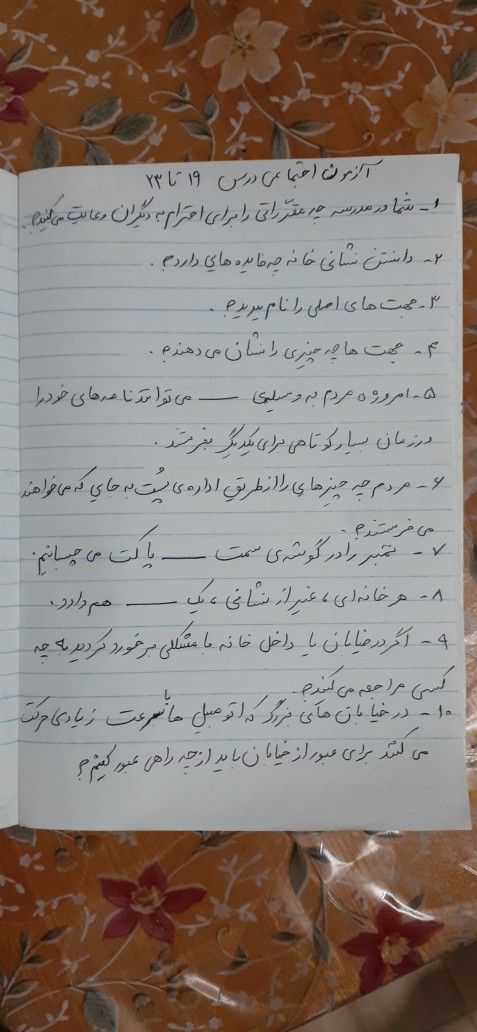 آزمون اجتماعی درس ۱۹ تا ۲۳
۱- شما در مدرسه چه مقرّراتی را برای احترام به دیگران رعایت می‌کنید؟.
۲- دانستن نشانی خانه چه فایده‌هایی دارد؟.
۳- جهت‌های اصلی را نام ببرید؟.
۴- جهت‌ها چه چیزی را نشان می‌دهند؟.
۵- امروزه مردم به وسیله‌ی ــــ می‌توانند نامه‌های خود را
در زمان بسیار کوتاهی برای یکدیگر بفرستند.
۶- مردم چه چیزهایی را از طریق اداره‌ی پُست به جایی که می‌خواهند
می‌فرستند؟.
۷- تمبر را در گوشه‌ی سمت ــــ پاکت می‌چسبانیم.
۸- هر خانه‌ای، غیر از نشانی، یک ــــ هم دارد.
۹- اگر در خیابان یا داخل خانه با مشکلی برخورد کردید به چه
کسی مراجعه می‌کنید؟.
۱۰- در خیابان‌های بزرگ که اتومبیل‌ها با سرعت زیادی حرکت
می‌کنند برای عبور از خیابان باید از چه راهی عبور کنیم؟